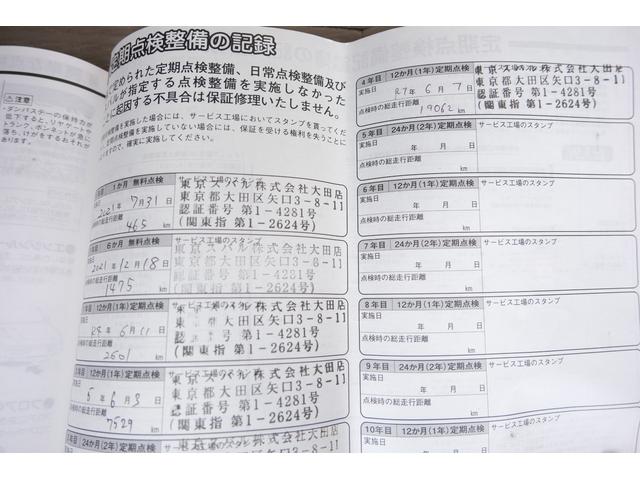 定期点検整備の記録
に定められた定期点検整備、日常点検整備及び
バルが指定する点検整備を実施しなかった
とに起因する不具合は保証修理いたしません。
検整備を実施した場合には、サービス工場においてスタンプを貰ってくだ
定期点検整備を実施していない場合には、保証を受ける権利を失うことに
ますので、確実に実施してください。
注意
・ダンパステーの保持力が
低下すると、
トランク、ボンネットが急に
落ち、けがをするおそれが
あります。
1か月 無料点検
サービス工場のスタンプ
2021年 7月31日
点検時の総走行距離
465 km
東京スバル株式会社大田店
東京都大田区矢口3-8-11
認証番号 第1-4281号
(関東指 第1-2624号)
6か月 無料点検
サービス工場のスタンプ
2021年12月18日
点検時の総走行距離
1475 km
東京スバル株式会社大田店
東京都大田区矢口3-8-11
認証番号 第1-4281号
(関東指 第1-2624号)
12か月(1年)定期点検
サービス工場のスタンプ
R4年 6月11日
点検時の総走行距離
2601 km
東京スバル株式会社大田店
東京都大田区矢口3-8-11
認証番号 第1-4281号
(関東指 第1-2624号)
12か月(1年)定期点検
サービス工場のスタンプ
5年 6月3日
点検時の総走行距離
7529 km
東京スバル株式会社大田店
東京都大田区矢口3-8-11
認証番号 第1-4281号
(関東指 第1-2624号)
24か月(2年)定期点検
サービス工場のスタンプ
4年目 12か月(1年)定期点検
実施日
R7年 6月7日
点検時の総走行距離
19062 km
東京スバル株式会社大田店
東京都大田区矢口3-8-11
認証番号 第1-4281号
(関東指 第1-2624号)
5年目 24か月(2年)定期点検
サービス工場のスタンプ
実施日
年 月 日
点検時の総走行距離
km
6年目 12か月(1年)定期点検
サービス工場のスタンプ
実施日
年 月 日
点検時の総走行距離
km
7年目 24か月(2年)定期点検
サービス工場のスタンプ
実施日
年 月 日
点検時の総走行距離
km
8年目 12か月(1年)定期点検
サービス工場のスタンプ
実施日
年 月 日
点検時の総走行距離
km
9年目 24か月(2年)定期点検
サービス工場のスタンプ
実施日
年 月 日
点検時の総走行距離
km
10年目 12か月(1年)定期点検
サービス工場のスタンプ
実施日
年 月 日